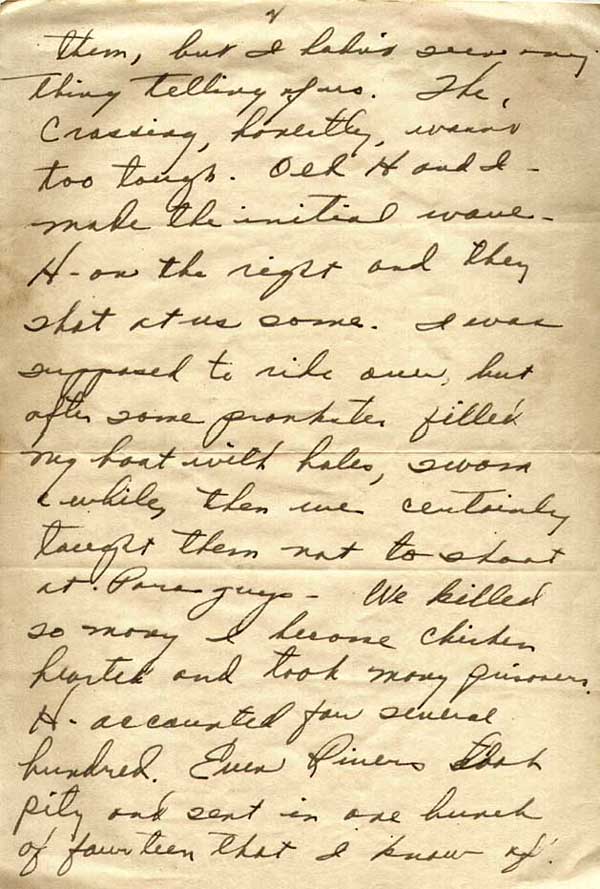 2
them, but I havn't seen any
thing telling of us. The
Crossing, honestly, wasn't
too tough. Old H and I -
made the initial wave -
H - on the right and they
shot at us some. I was
supposed to ride over, but
after some prankster filled
my boat with holes, swam
a while, then we certainly
taught them not to shoot
at Para guys - We killed
so many I became chicken
hearted and took many prisoners.
H - accounted for several
hundred. Even Rivers took
pity and sent in one bunch
of fourteen that I know of.